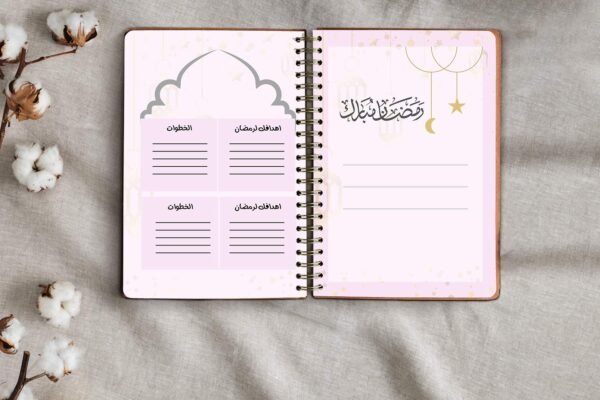 رمضان مبارك
اهدافك لرمضان
الخطوات
اهدافك لرمضان
الخطوات